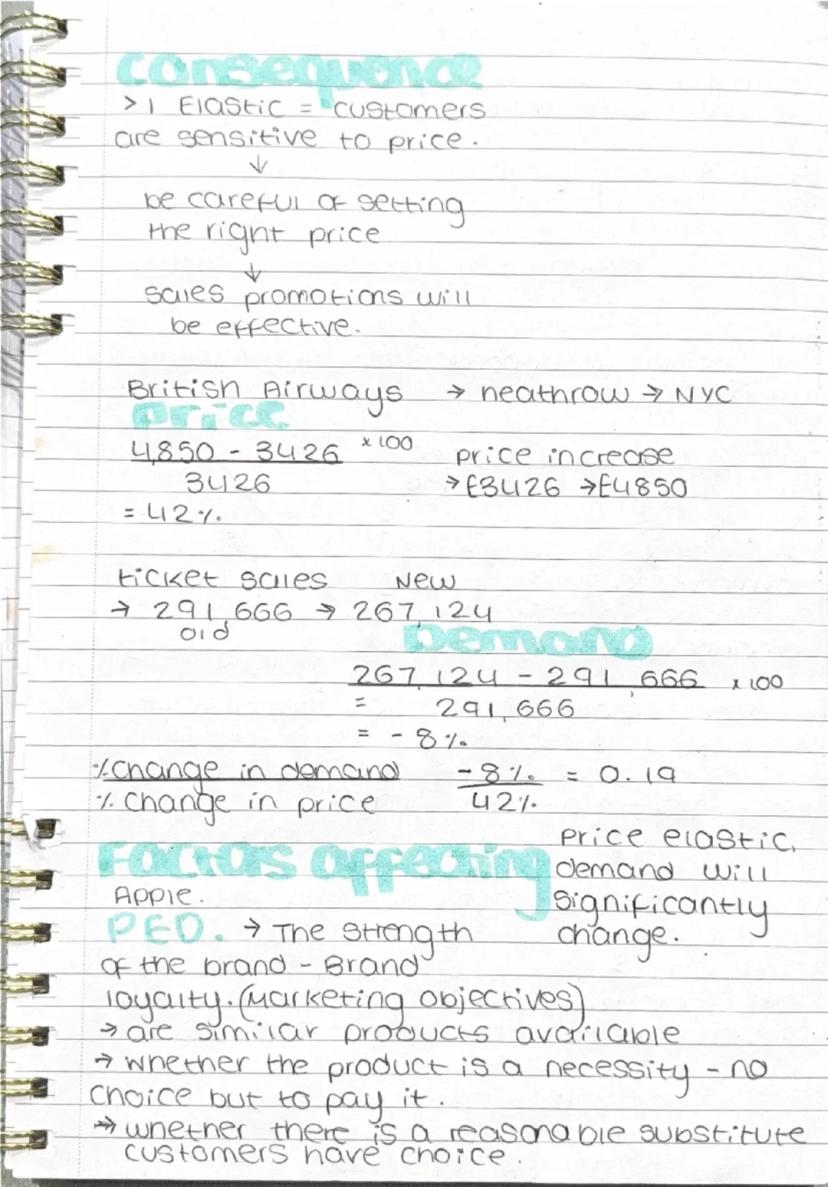 Consequence
>1 Elastic = customers
are sensitive to price.
↓
be careful of setting
the right price
↓
sales promotions will
be effective.
British Airways → heathrow → NYC
price
4,850 - 3426 x 100
3426
= 42%
price increase
→ £3426 → £4850
ticket sales New
→ 291,666 → 267,124
old
Demand
267,124 - 291,666 x 100
= 291,666
= - 8%
% Change in demand -8% = 0.19
% Change in price 42%
Price elastic,
demand will
significantly
change.
Factors affecting
Apple.
PED. → The strength
of the brand - Brand
loyalty. (Marketing objectives)
→ are similar products available
→ whether the product is a necessity - no
choice but to pay it.
→ whether there is a reasonable substitute
customers have choice.